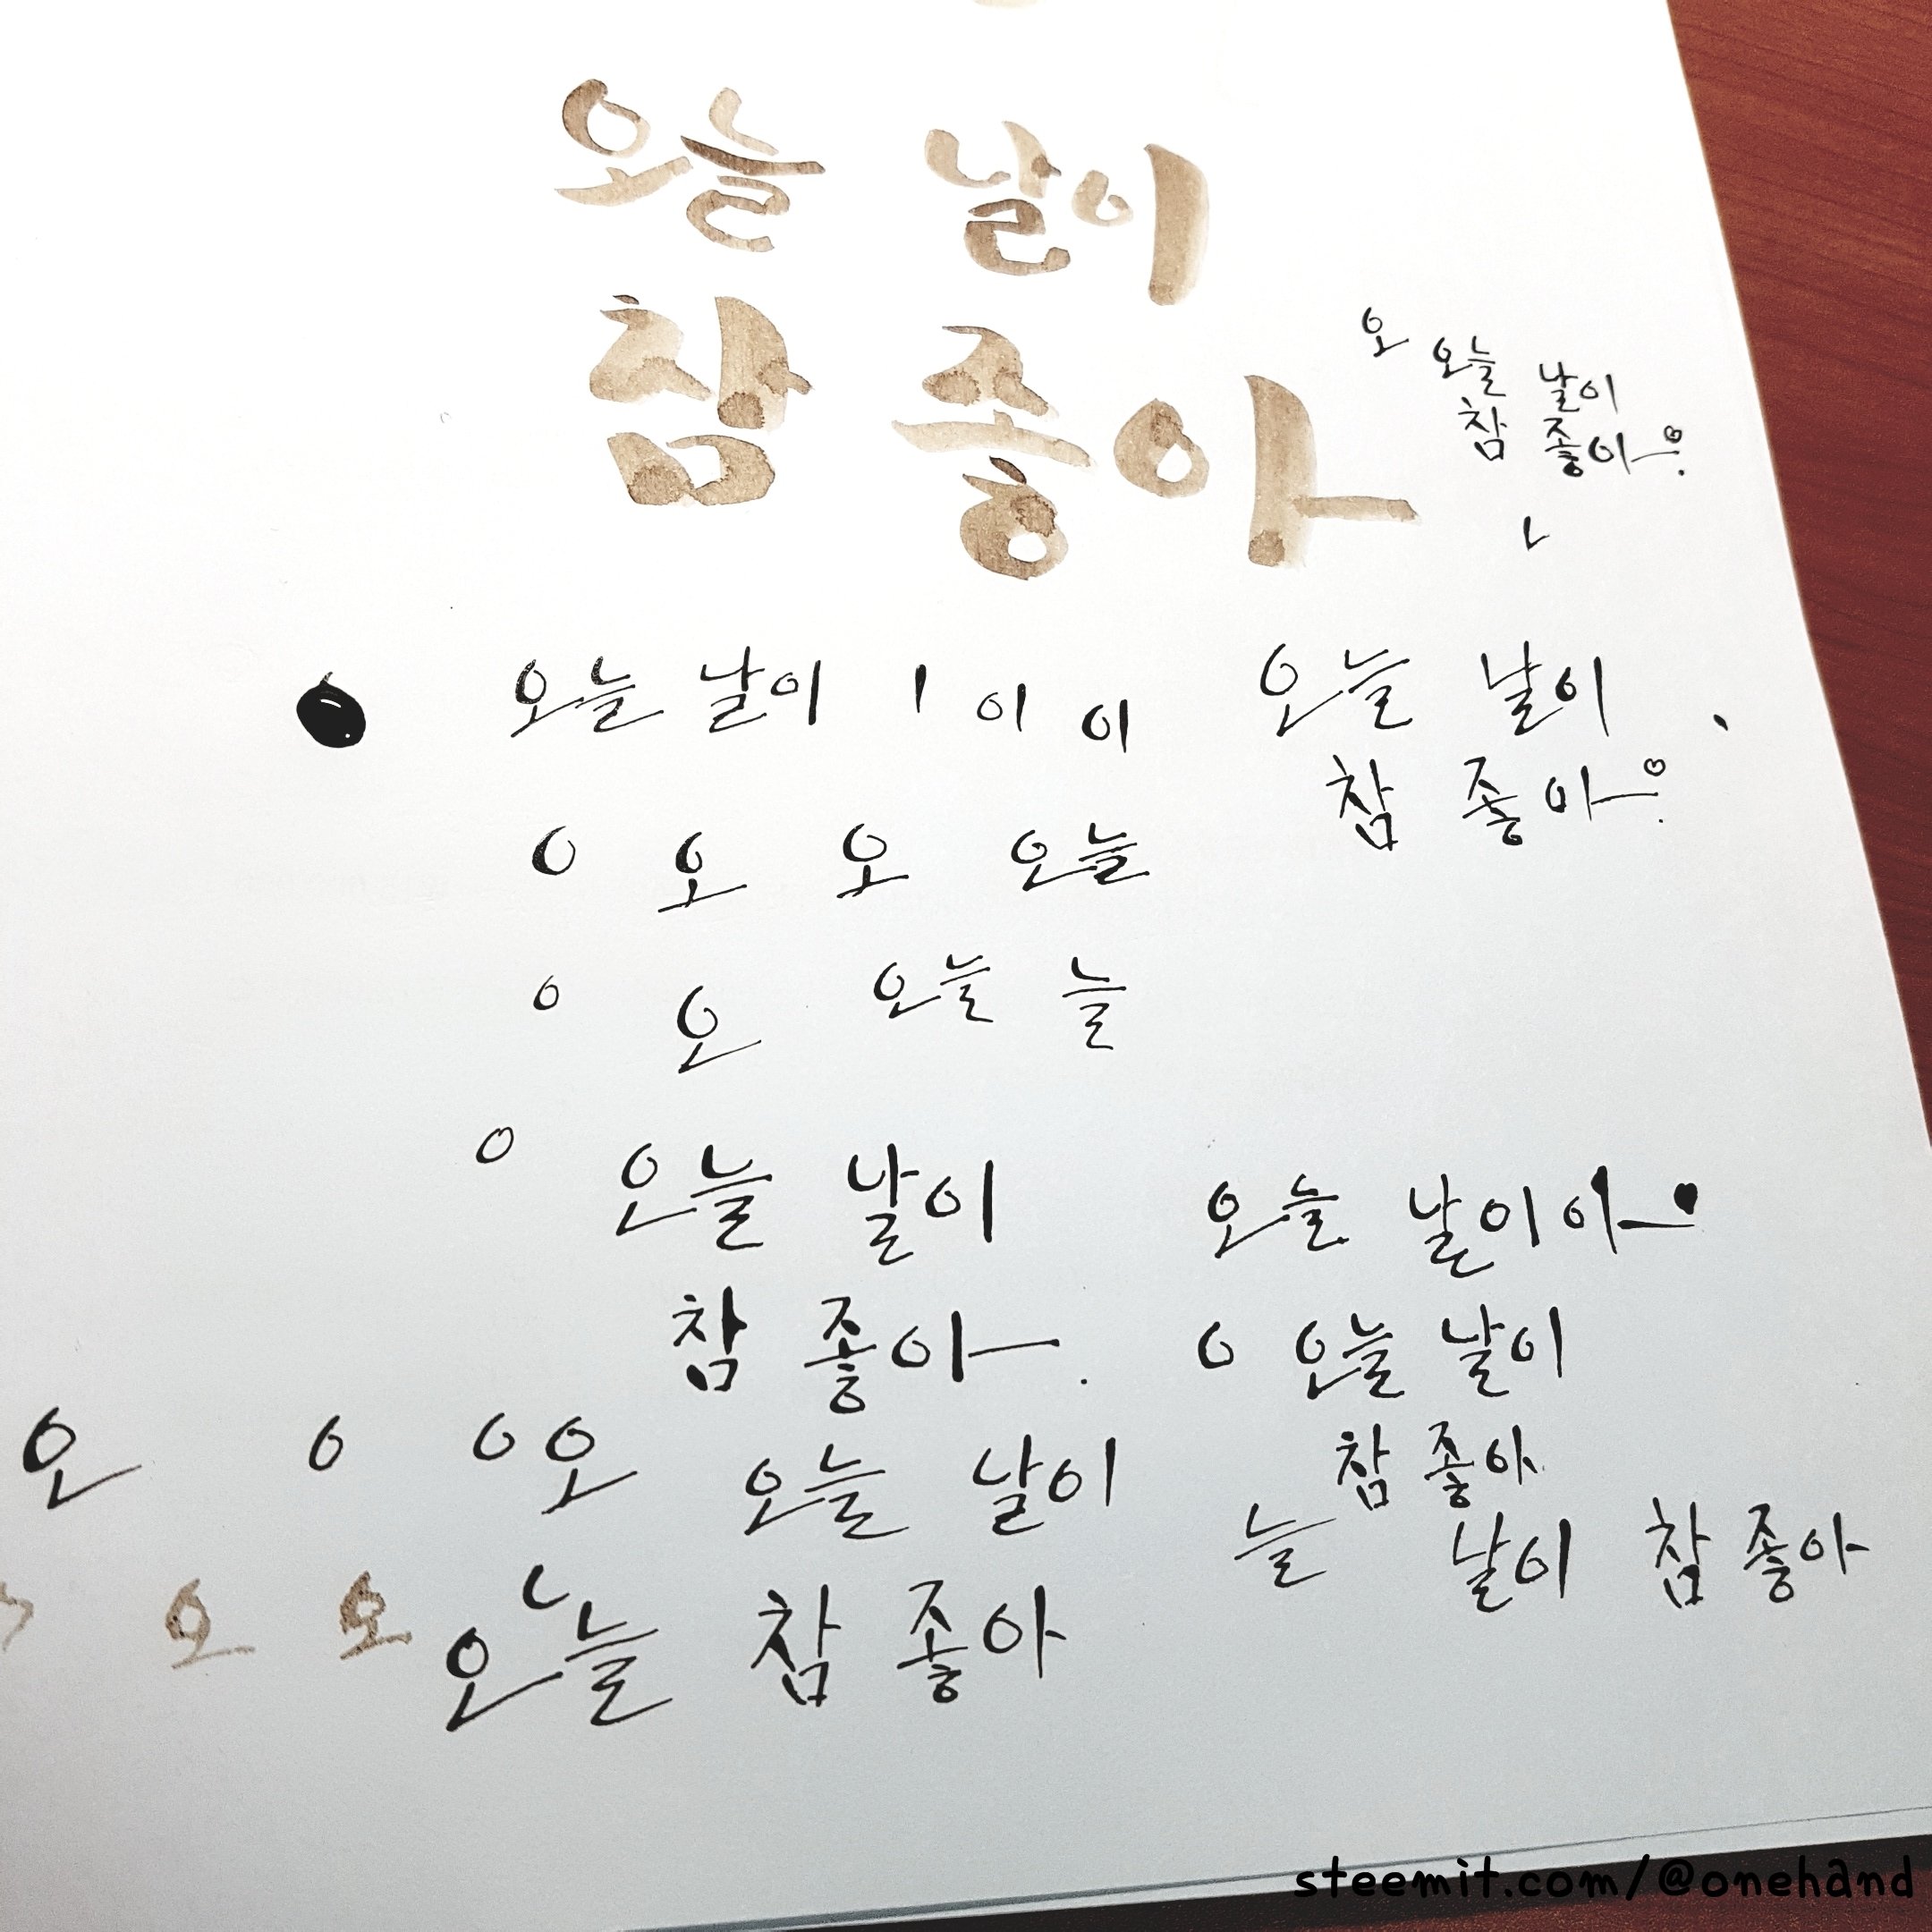 오늘 날이
참 좋아
오
오늘 날이
참 좋아
ㄴ
오늘 날이 ㅣ 이 이
오늘 날이
참 좋아
ㅇ 오 오 오늘
ㅇ 오 오늘 늘
ㅇ
오늘 날이
참 좋아
오늘 날이이아
ㅇ 오늘 날이
참 좋아
오 ㅇ ㅇ오 오늘 날이
늘 날이 참 좋아
오 오
ㄴ
오늘 참 좋아
steemit.com/@onehand